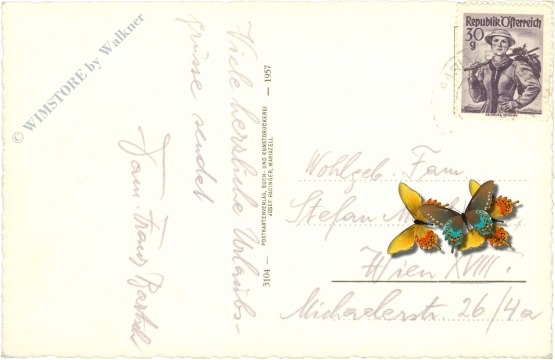 © WIMSTORE by Walkner
Viele herzliche Urlaubs-
grüsse sendet
Fam. Franz
5104 — POSTKARTENVERLAG, BUCH- UND KUNSTDRUCKEREI — 1957
JOSEF RADINGER, MARIAZELL
Republik Österreich
30
g
Wohlgeb. Fam.
Stefan
Wien XVIII.
Michaelerstr. 26/4a